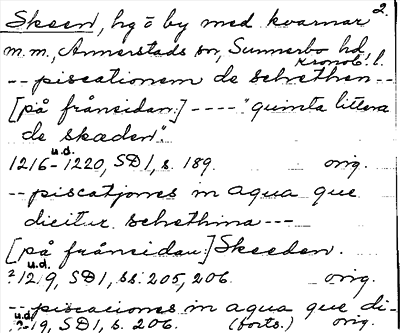 2.
Skeen, hg o by med kvarnar
m.m., Annerstads sn, Sunnerbo hd,
Kronob. l.
-- piscationem de schethen --
[på frånsidan:] ---- "quinta littera
de skæden".
u.d.
1216-1220, SD 1, s. 189. orig.
-- piscatjones in aqua que
dicitur schethina ---
[på frånsidan:] Skeeden.
u.d.
? 1219, SD 1, ss. 205, 206. orig.
-- piscaciones in aqua que di-
u.d.
?-19, SD 1, s. 206. (forts.) orig.